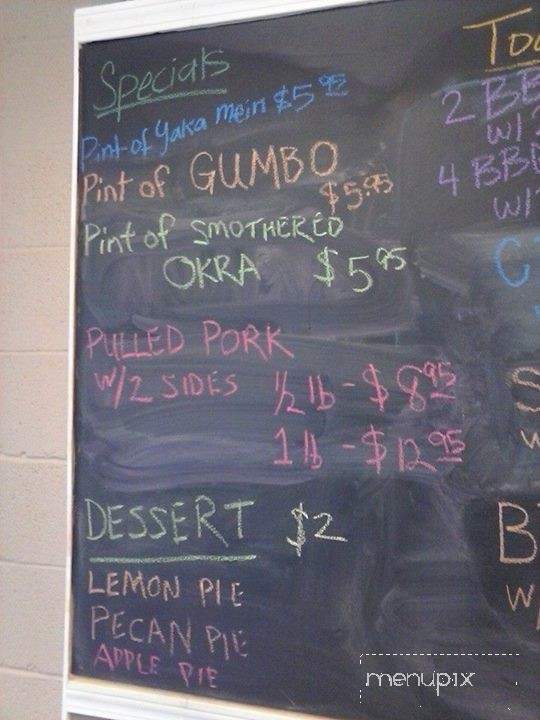 Specials
Pint of Yaka mein $5.95
Pint of GUMBO
$5.95
Pint of SMOTHERED
OKRA $5.95
PULLED PORK
W/2 SIDES 1/2 lb - $8.95
1 lb - $12.95
DESSERT $2
LEMON PIE
PECAN PIE
APPLE PIE
2 BB
W/
4 BB
W/
menupix